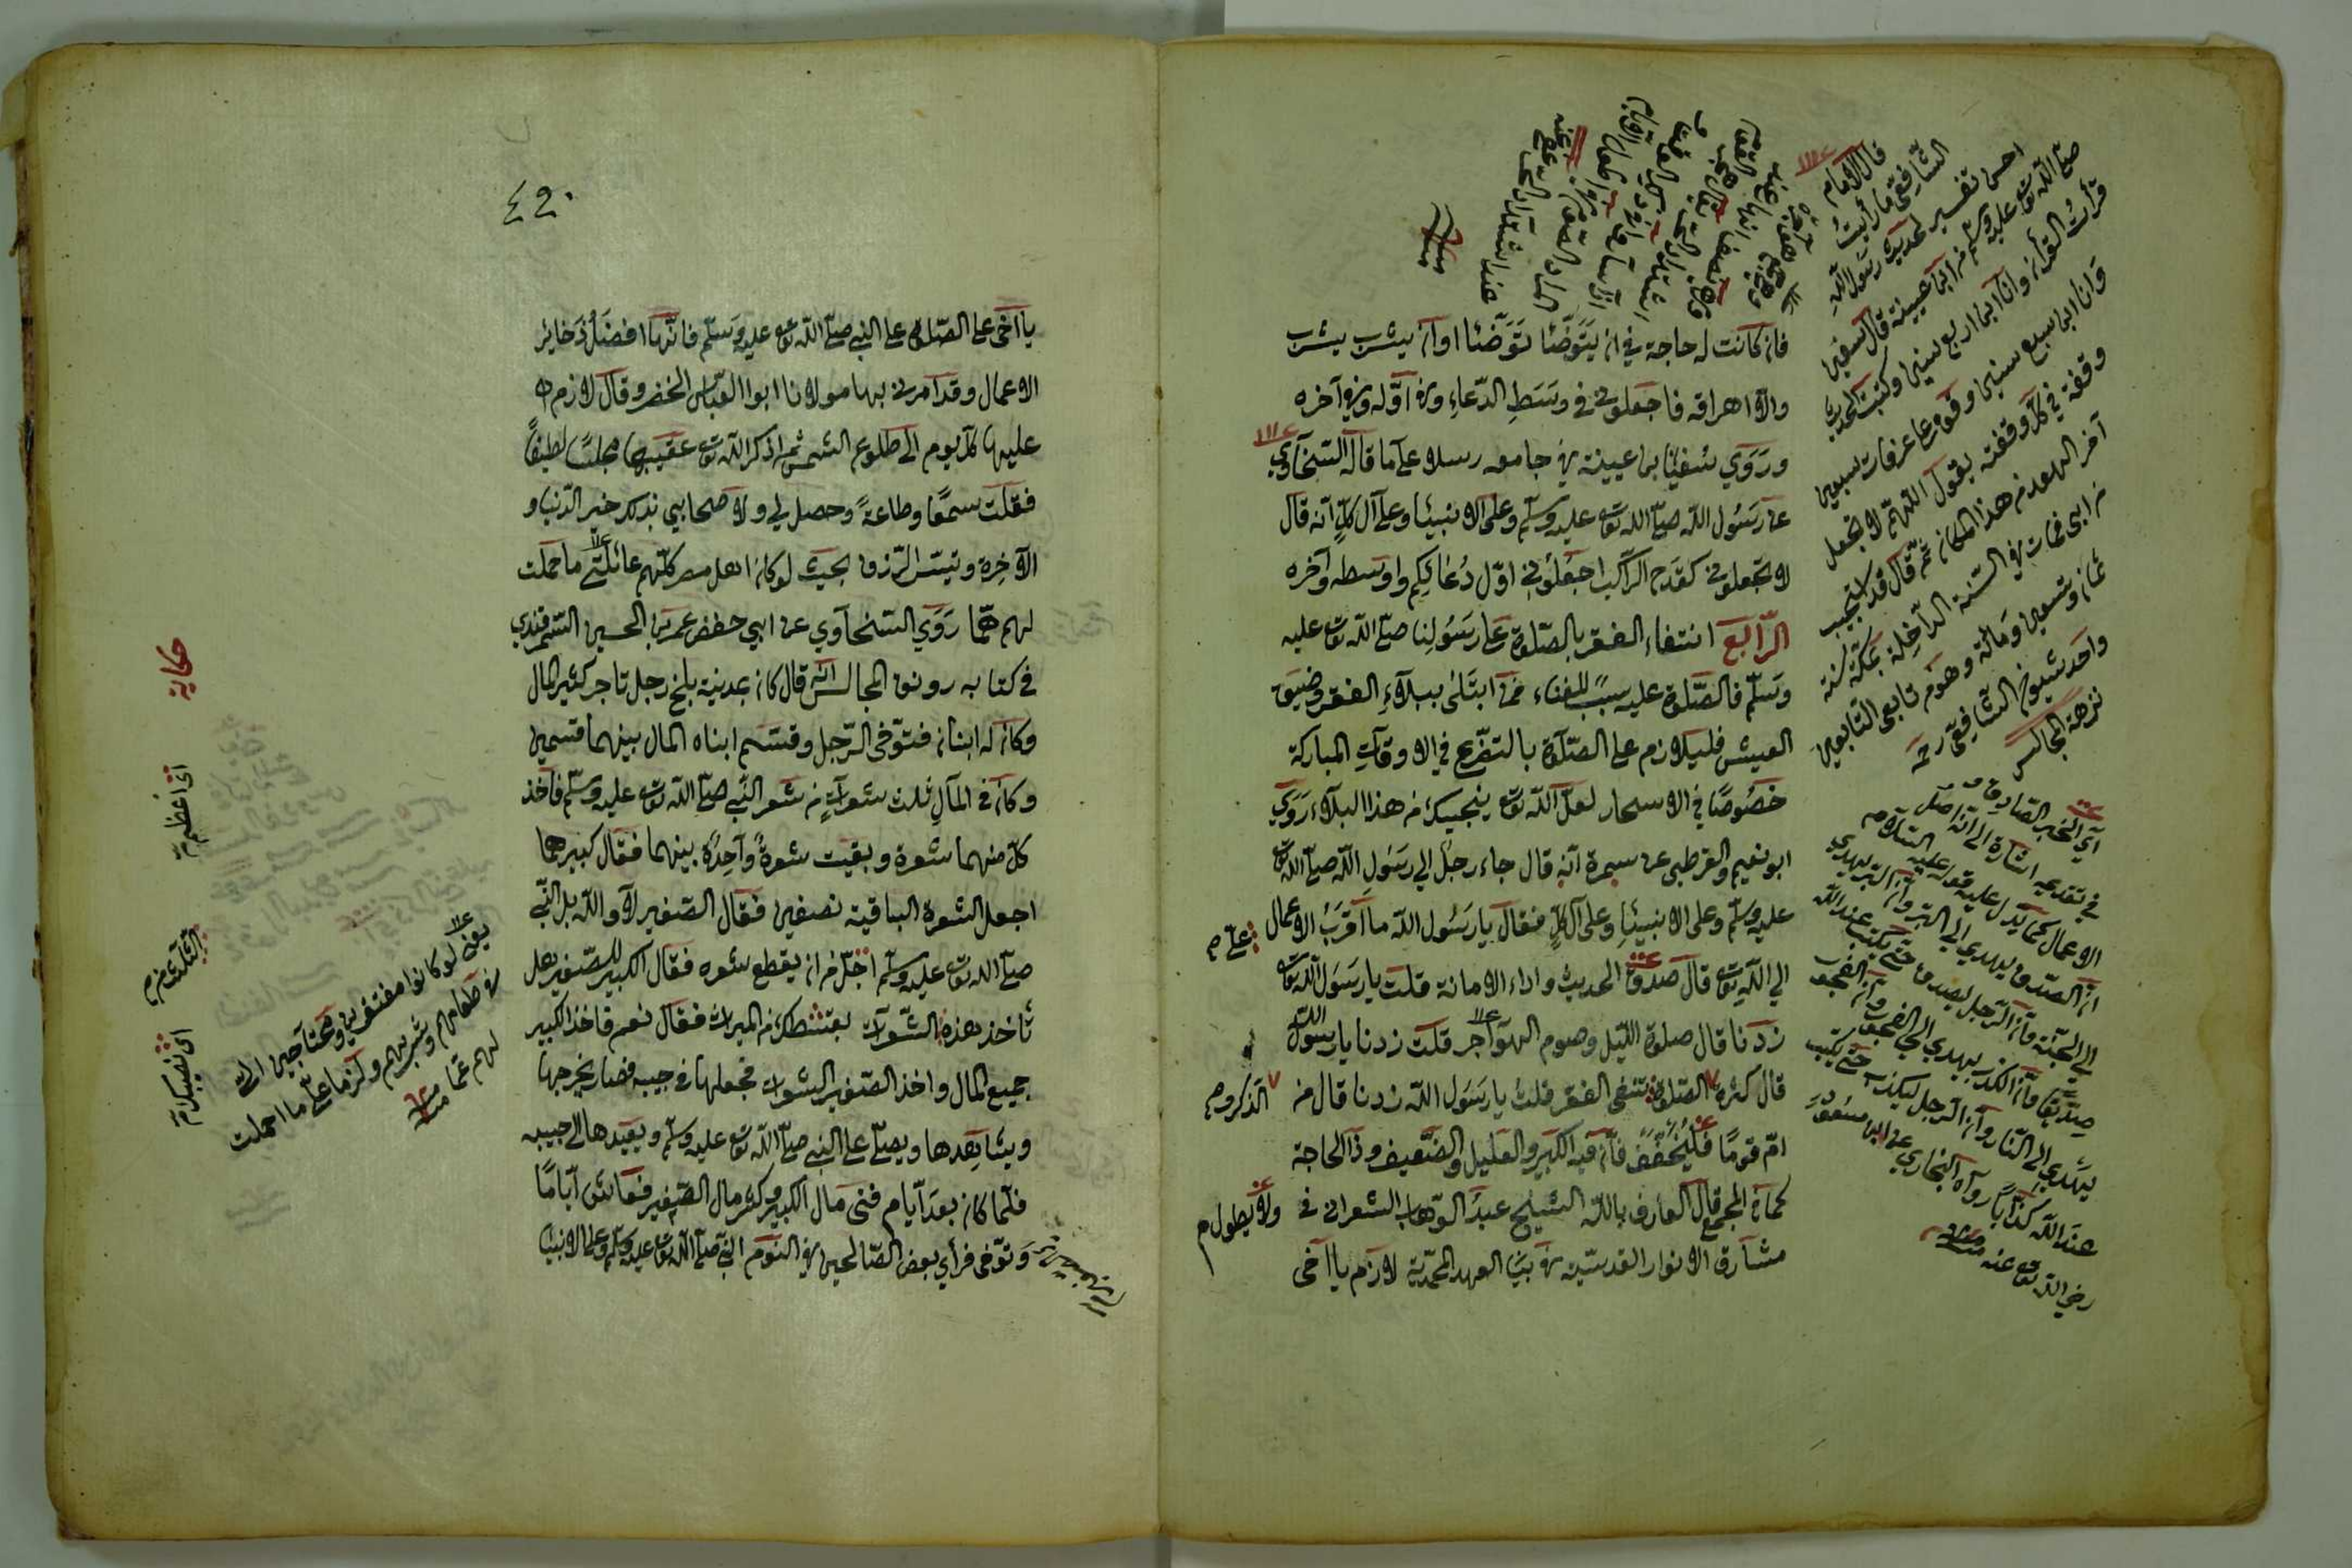 فان كانت له حاجة في ان يَتَوَضّئا تَوَضّئا اوان يشرب يشرب
والّا اهراقه فاجعلوني في وسَطِ الدّعاءِ وفي اوّله وفي آخره
ورَوَي سفيٰن بن عيينة في جامعه رسلا على ما قاله السّخاوي
عن رَسُول الله صلّى الله تع عليه وسلّم وعلى الانبيٓاء وعلى آل كلٍّ انّه قال
لا تجعلوني كقدح الراكب اجعَلوني اوّل دُعٰائِكم واوسطه وآخره
الرّابع انتفاء الفقر بالصّلوة عَلى رَسُولِنا صلّى الله تع عليه
وسَلّم فالصّلوة عليه سببٌ للغناء فمن ابتَلىٰ ببلاءِ الفقر وضيق
العيش فليلازم على الصّلوة بالتضرّع في الاوقات المباركة
خصُوصًا في الاسحار لعلّ الله تع ينجيك من هذا البلاء رَوَي
ابو نعيم والقرطبي عن سمرة انّه قال جاء رجل الي رَسُول الله صلّى الله تع
عليه وسلّم وعلى الانبيٓاءِ وعلى آل كلٍّ فقال يا رَسُول الله ما اقرَبُ الاعمال
الي اللهِ تع قال صدق الحديث واداء الامانة قلت يا رَسُول الله تع
زدنا قال صلوة الليل وصوم الهوٓاجر قلت زدنا يا رسول الله
قال كثرة الصلوة تنفي الفقر قلت يا رَسُول الله زدنا قال من
امّ قومًا فليُخَفّفْ فانّ فيه الكبير والعليل والضّعيف وذا الحاجة
كما في المجمع قال العارف بالله الشيخ عبدُ الوّهاب الشعراني في
مشارق الانوار القدسيّة في بيٰن العهد المحمّديّة لازم يا اخي
على م
الذكر و م
ولا يطول م
قال الامام
الشّافعيّ ما رأيتُ
احسن تفسير لحديث رسول الله
صلى الله تع عليه وسلّم من ابن عيينة قال سفين
قرأتُ القرآن وانا ابن اربع سنين وكتبت الحديث
وانا ابن سبع سنين وقفت على عرفات سبعين
وقفة في كلّ وقفته يقول اللّهمّ لا تجعل
آخر العهد من هذا المكان ثمّ قال قد استجيب
من ابي فمات في السّنة الدّاخلة بمكّة سنة
ثمان وتسعين ومائة وهو من تابعي التّابعين
واحد شيوخ الشّافعيّ رحه
نزهة المجالس
في تقديمه اشارة الى انّه اصل
الاعمال كما يدل عليه قوله عليه السّلام
انّ الصّدق يهدي الى البرّ وانّ البرّ يهدي
الي الجنّة وانّ الرّجل ليصدق حتّى يكتب عند الله
صدّيقًا وانّ الكذب يهدي الي الفجور وانّ الفجور
يهدي الى النّار وانّ الرجل ليكذب حتّى يكتب
عند الله كذّابًا رواه البخاري عن ابن مسعود
رضي الله تع عنه منه
٤٢٠
يا اخي على الصّلوة على النبي صلّى الله تع عليه وَسَلّم فانّها افضلُ ذَخاير
الاعمال وقد امرني بها مولانا ابوا العبّاس الخضر وقال لازم
عليها كلّ يوم الى طلوع الشمس ثم اذكر الله تع عقيبها مجلسًا لطيفًا
فقلت سمعًا وطاعةً وحصل لي ولاصحابي بذلك خير الدّنيا و
الآخرة وتيسّر الرّزق بحيث لو كان اهل مصر كلّهم عائلتي ما حملت
لهم همّا رَوَي السّخاوي عن ابي حفص عمر بن الحسين السّمرقندي
في كتابه رونق المجالس انّه قال كان بمدينة بلخ رجل تاجر كثير المال
وكان له ابنان فتوّفى الرّجل وقسّم ابناه المال بينهما قسمين
وكان في المالِ ثلث شعراتٍ من شعر النّبي صلّى الله تع عليه وسلّم فاخذ
كلّ منهما شعرة وبقيت شعرةٌ وٓاحدةٌ بينهما فقال كبيرهما
اجعل الشعرة الباقية نصفين فقال الصّغير لا والله بل النّبي
صلّى الله تع عليه وسلّم اجلّ من ان يقطع شعره فقال الكبير للصّغير هل
تاخذ هذه الشّعرات بقسطك من الميراث فقال نعم فاخذ الكبير
جميع المال واخذ الصّغير الشعرات فجعلها في جيبه فصار يخرجها
ويشاهدها ويصلّي على النبي صلّى الله تع عليه وسلّم ويعيدها الى جيبه
فلمّا كان بعد ايّام فنى مال الكبير وكثر مال الصّغير فعاش ايّامًا
وتوّفى فرأي بعض الصّالحين في النوم النّبي صلّى الله تع عليه وسلّم وعلى الانبيٓاء
حكاية
اى اعظم م
الثلث م
اى نصيبك م
يعني لو كانوا مفتقرين ومحتاجين الى
في طعامهم وشربهم ولزم على ما احملت
لهم غما منه